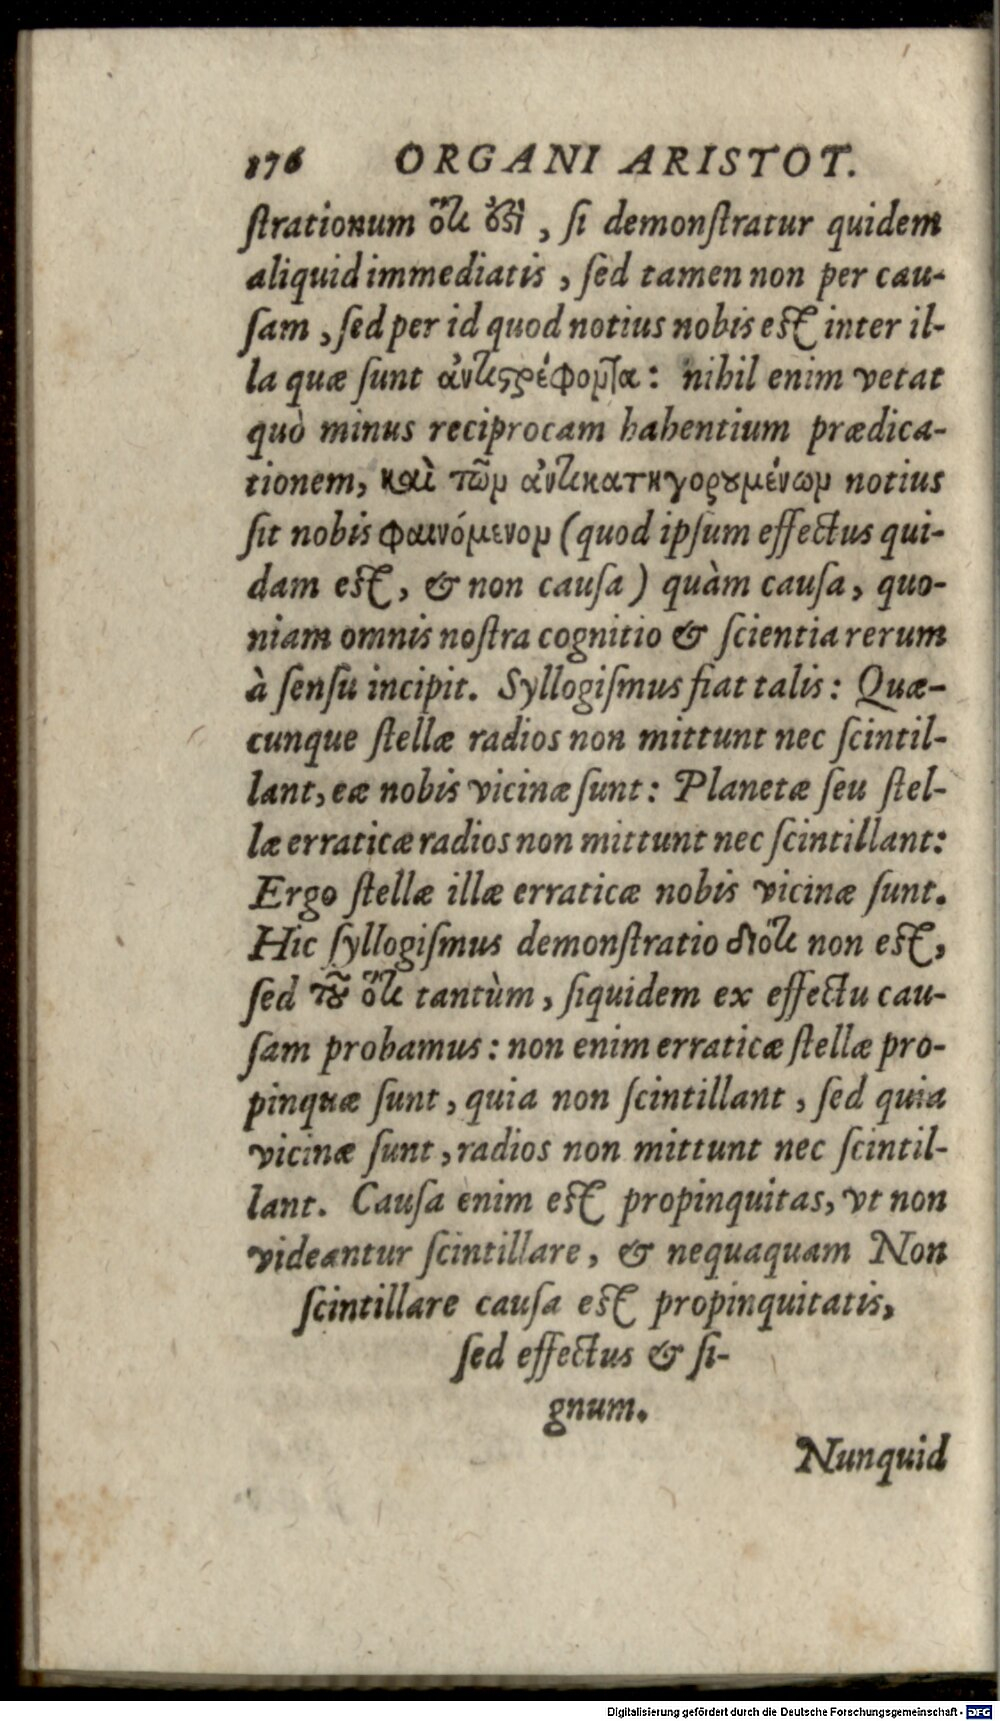 176 ORGANI ARISTOT.
ſtrationum ὅτι ὅτι, ſi demonſtratur quidem
aliquid immediatis, ſed tamen non per cau-
ſam, ſed per id quod notius nobis eſt inter il-
la quæ ſunt ἀντιςρέφοντα: nihil enim vetat
quò minus reciprocam habentium prædica-
tionem, καὶ τῶν ἀντικατηγορουμένων notius
ſit nobis φαινόμενον (quod ipſum effectus qui-
dam eſt, & non cauſa) quàm cauſa, quo-
niam omnis noſtra cognitio & ſcientia rerum
à ſenſu incipit. Syllogiſmus fiat talis: Quæ-
cunque ſtellæ radios non mittunt nec ſcintil-
lant, eæ nobis vicinæ ſunt: Planetæ ſeu ſtel-
læ erraticæ radios non mittunt nec ſcintillant:
Ergo ſtellæ illæ erraticæ nobis vicinæ ſunt.
Hic ſyllogiſmus demonſtratio διότι non eſt,
ſed τοῦ ὅτι tantùm, ſiquidem ex effectu cau-
ſam probamus: non enim erraticæ ſtellæ pro-
pinquæ ſunt, quia non ſcintillant, ſed quia
vicinæ ſunt, radios non mittunt nec ſcintil-
lant. Cauſa enim eſt propinquitas, vt non
videantur ſcintillare, & nequaquam Non
ſcintillare cauſa eſt propinquitatis,
ſed effectus & ſi-
gnum.
Nunquid
Digitalisierung gefördert durch die Deutsche Forschungsgemeinschaft - DFG